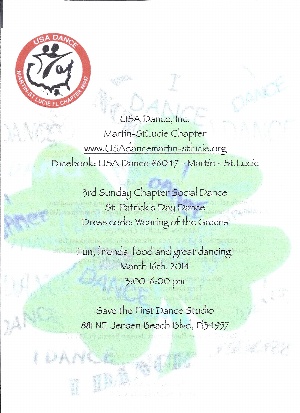 USA DANCE
MARTIN-ST LUCIE FL CHAPTER 6017
USA Dance, Inc.
Martin-St.Lucie Chapter
www.USAdancemartin-stlucie.org
Facebook: USA Dance #6017 - Martin - St. Lucie
3rd Sunday Chapter Social Dance
St. Patrick's Day Dance
Dress code: Wearing of the Greens
Fun, friends, food and great dancing
March 16th, 2014
3:00-6:00 pm
Save the First Dance Studio
881 NE Jensen Beach Blvd, Fl 34957
I
DANCE
DANCE
DANCE
I DANCE
I DANCE